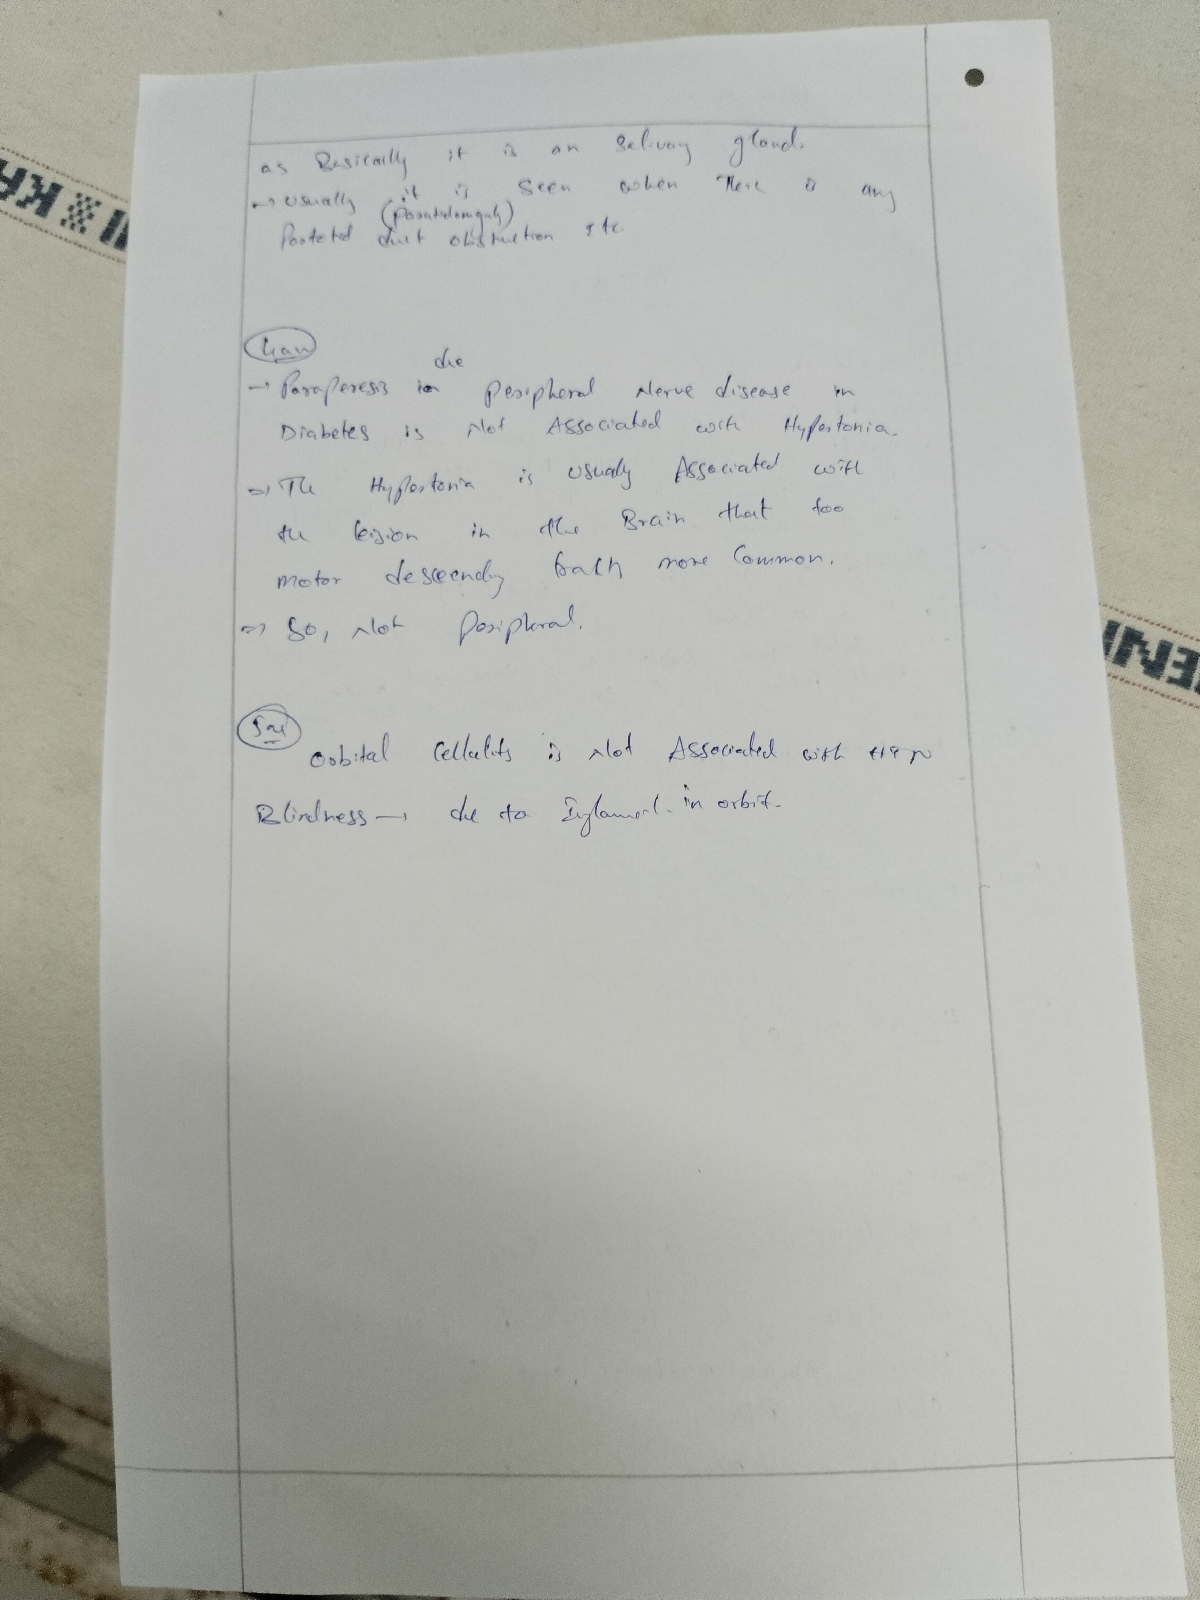 as Basically it is an Salivary gland.
→ usually it is seen when There is any
(parotidomegaly)
Parotid duct obstruction etc.
due
→ Paraperesis in peripheral nerve disease in
Diabetes is Not Associated with Hypertonia.
→ The Hypertonia is usually Associated with
the lesion in the Brain that too
motor descending tracts more Common.
→ So, Not Peripheral.
Orbital Cellulits is Not Associated with HTN
Blindness → due to in orbit.
KA
ENI